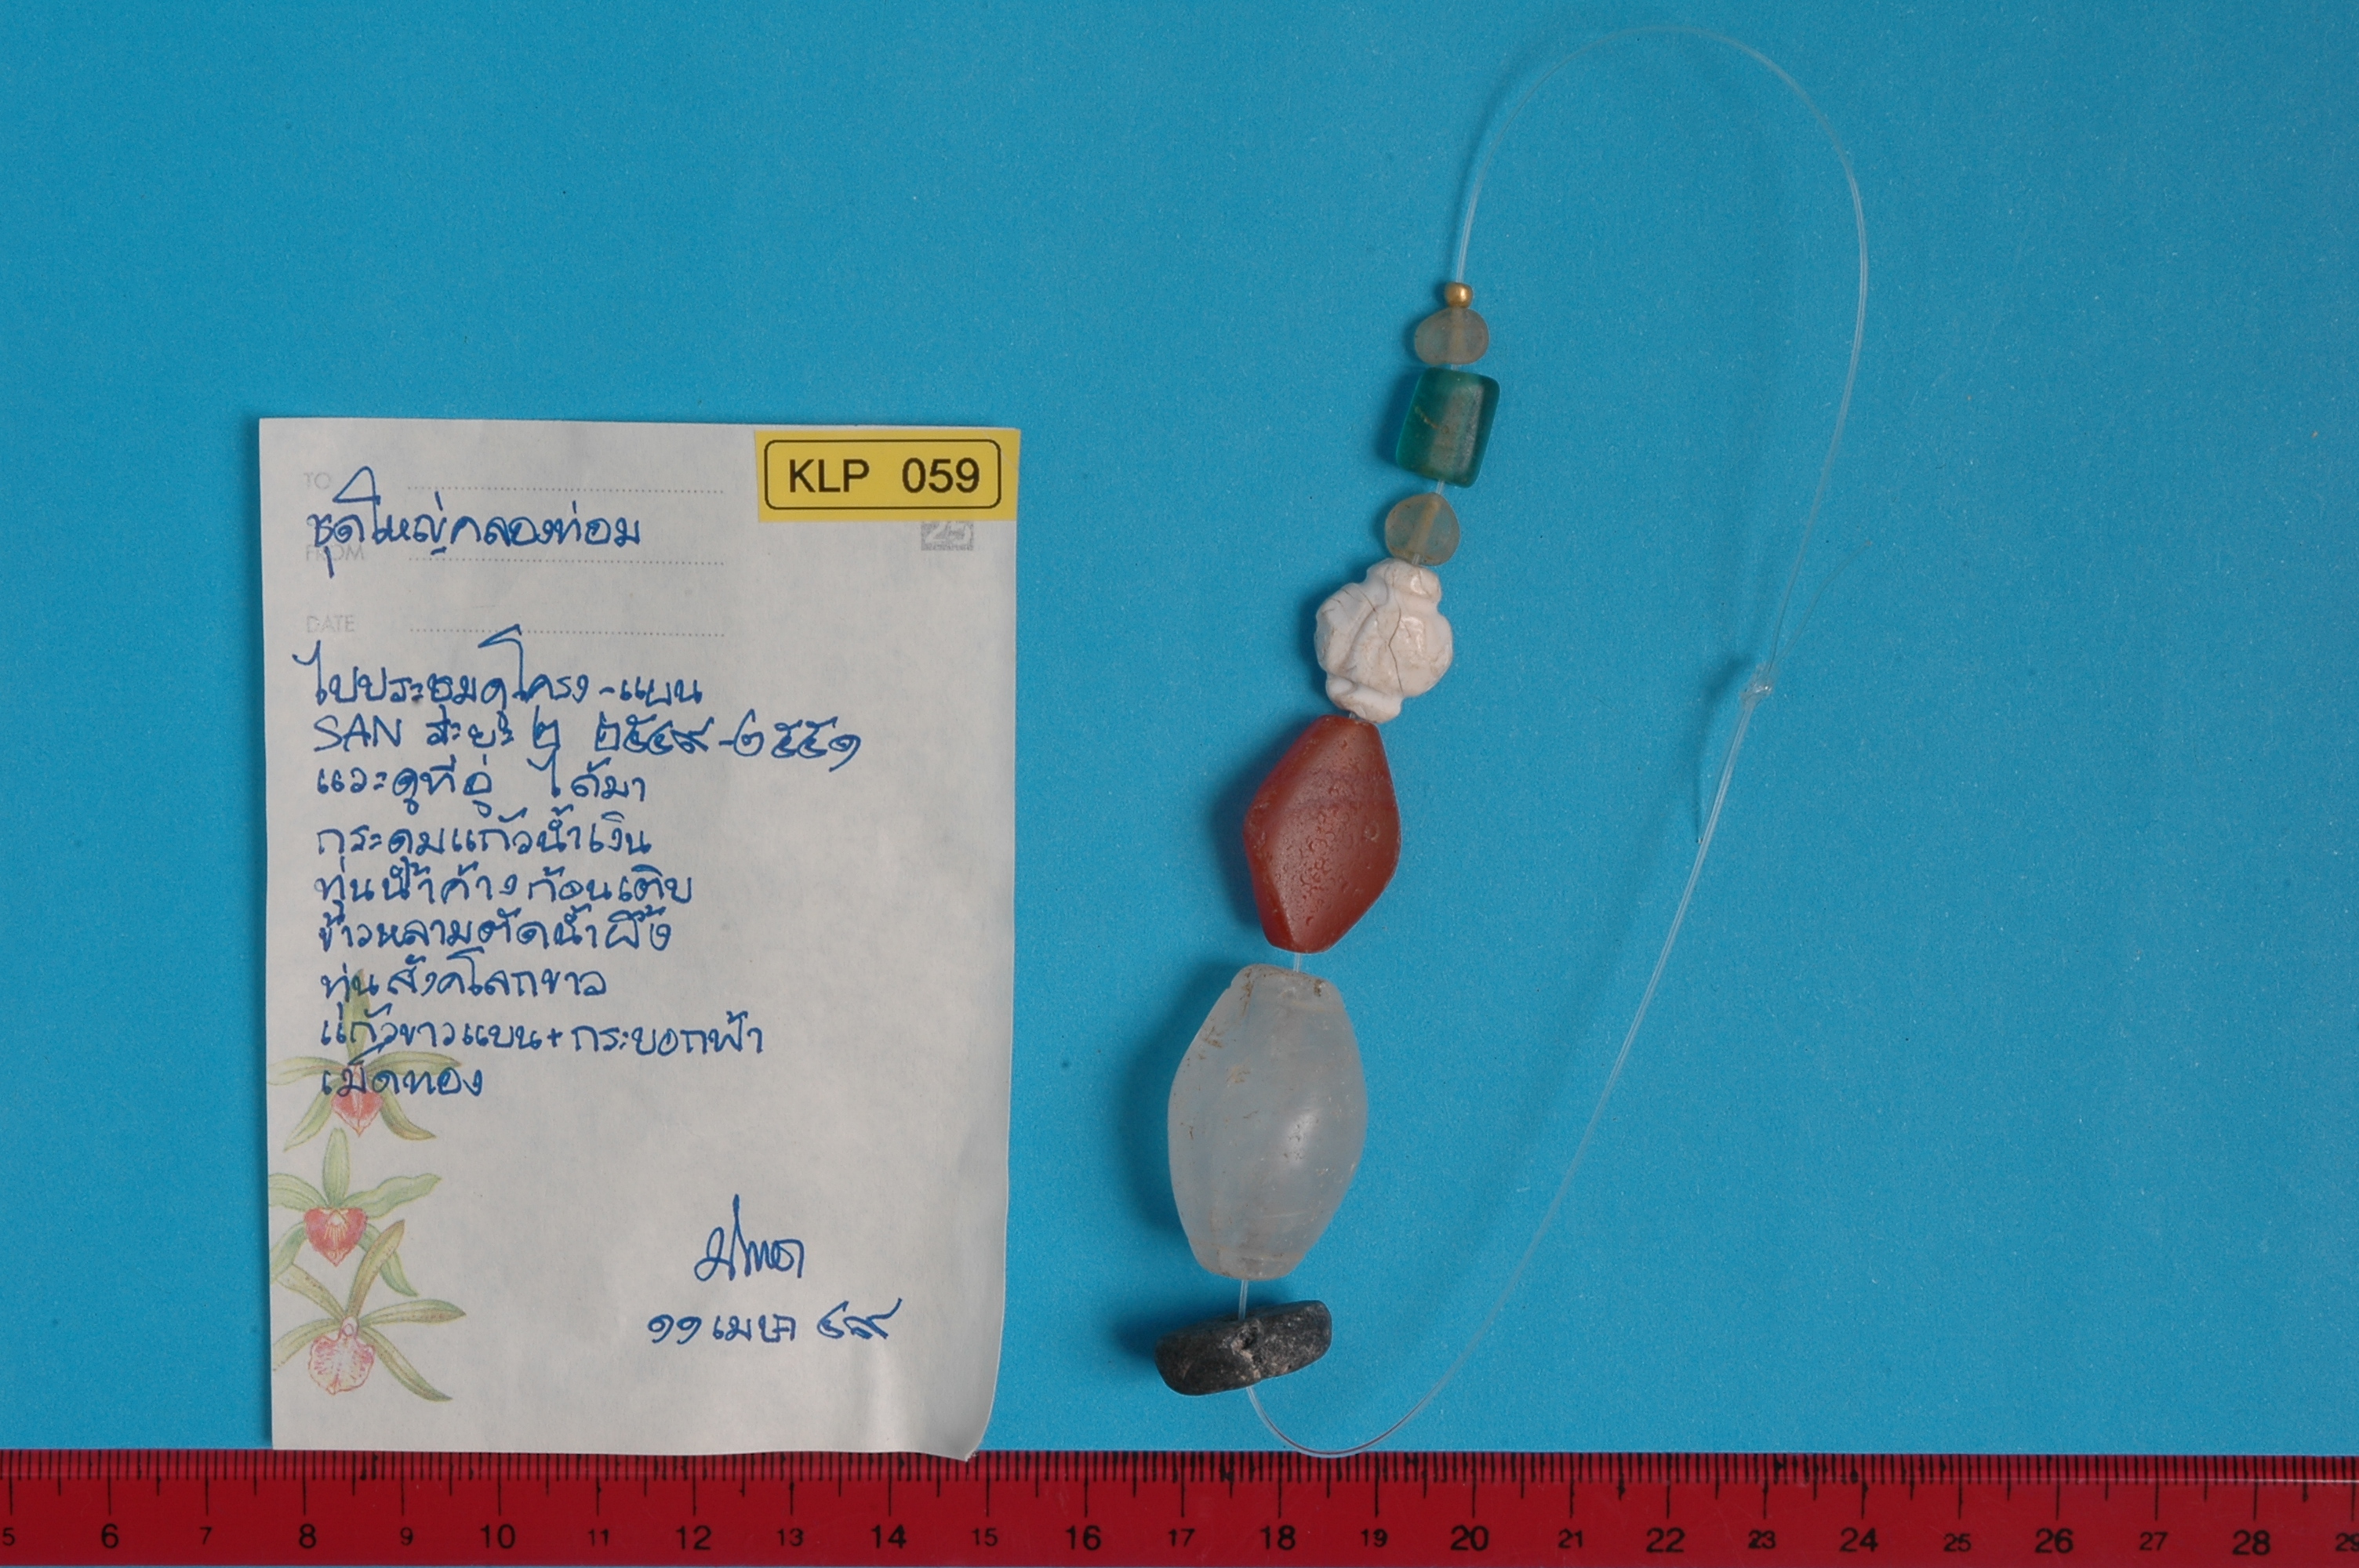 KLP 059
TO
ชุดใหญ่คลองท่อม
FROM
25
DATE
ไปประชุมดูโครง-แบน
SAN ระยะ ๒ ๒๕๔๙-๒๕๕๑
แวะดูที่อู่ ได้มา
กระดุมแก้วน้ำเงิน
ทุ่นน้ำค้างก้อนเติบ
ข้าวหลามตัดน้ำผึ้ง
ทุ่นสังคโลกขาว
แก้วขาวแบน+กระบอกฟ้า
เม็ดทอง
๑๑ เมษา ๔๙
5 6 7 8 9 10 11 12 13 14 15 16 17 18 19 20 21 22 23 24 25 26 27 28 29